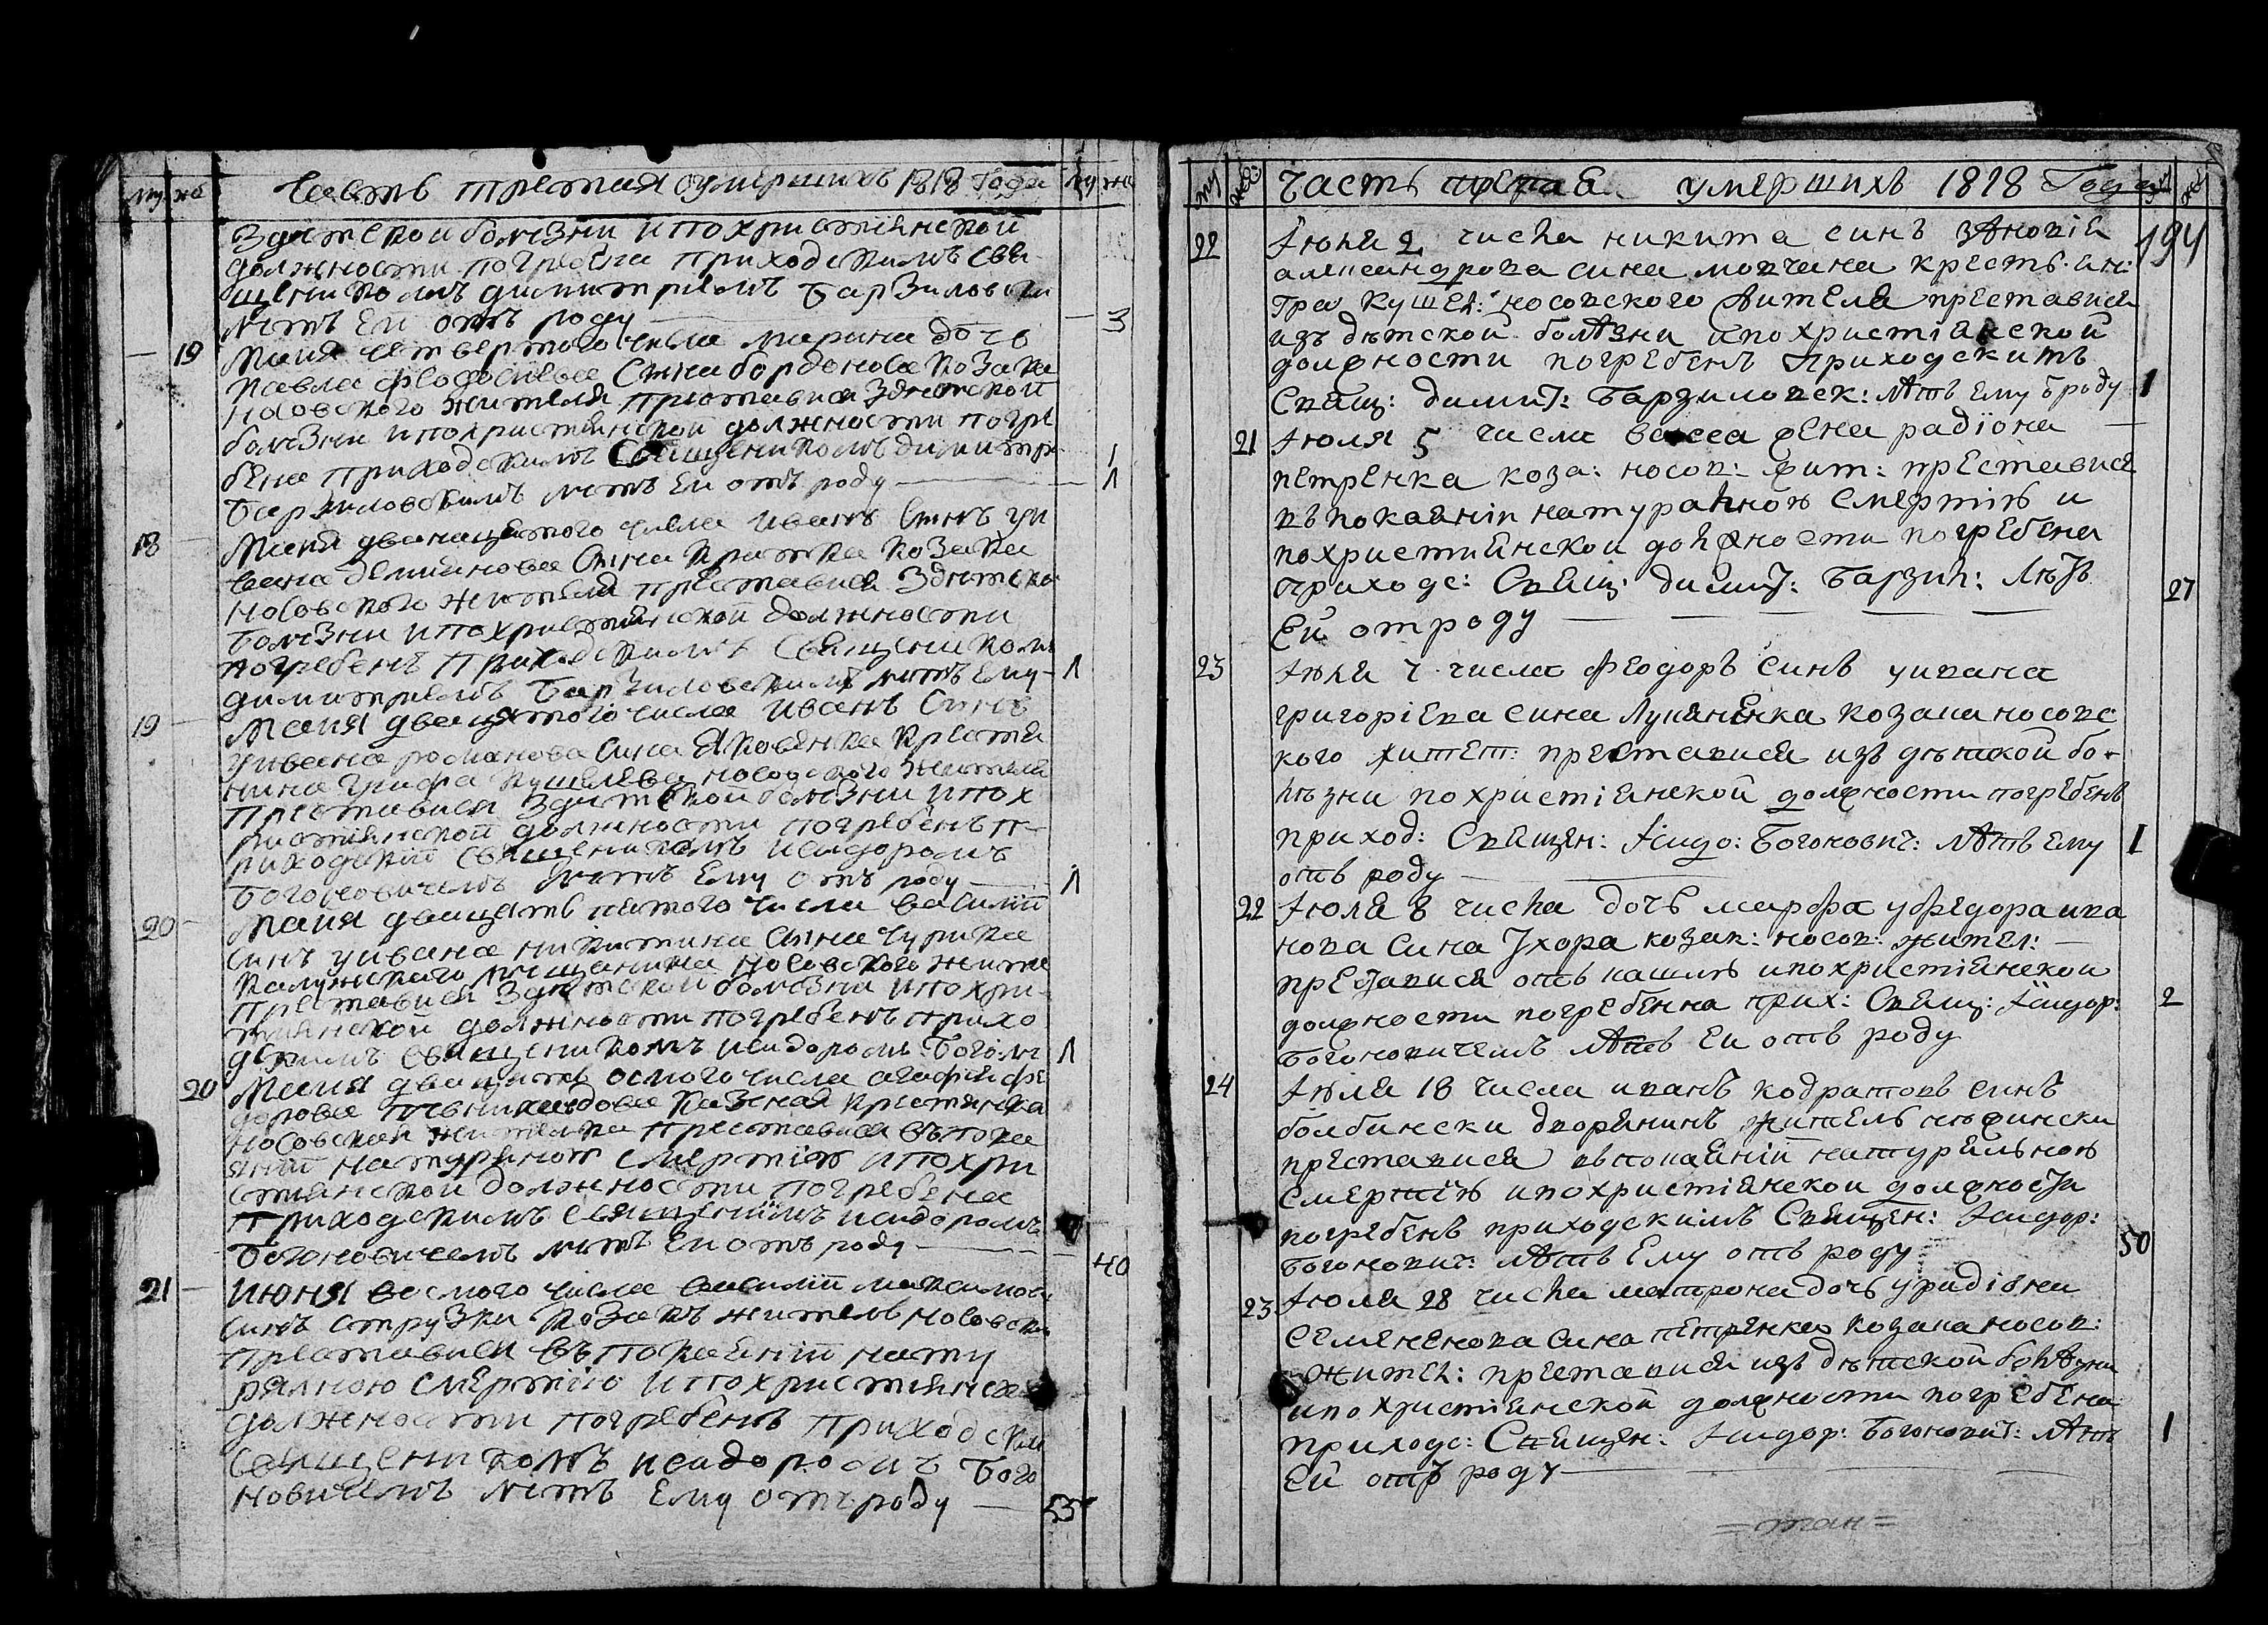 му же Часть третия оумершихъ 1818 Года му же
здетской болезни ипохристиянской
должности погребена приходскимъ свя
щеникомъ димитриемъ Барзиловски
летъ еи отъ роду — 3
19 Маия четвертого числа марина дочъ
павла феодосиева сина бордонова козака
носовского жителя преставися здетской
болезни ипохристиянской должности погре
бена приходскимъ Священикомъ димитри
Барзиловскимъ летъ еи отъ роду — 1
18 Маия двенацатого числа иванъ синъ
демиянова сина козака
носовского жителя преставися здетско
болезни ипохристиянской должности
погребенъ приходскимъ Священиком
димитриемъ Барзиловскимъ летъ ему — 1
19 Маия двацятого числа иванъ синъ
уивана романова сина Яковенка крестя
нина графа кушелева носовского жителя
преставися здетской болезни ипох
ристиянской должности погребенъ п
риходский священикомъ исидоромъ
Богоновичемъ летъ Ему отъ роду — 1
20 Маия двацать пятого числа василий
синъ уивана никитина сина чурика
носовского жите
преставися здетской болезни ипохри
тиянской должности погребенъ прихо
дскимъ священикомъ исидоромъ Богон 1
20 Маия двацять осмого числа агафия фе
дорова казеная крестянка
носовская жителка преставися въ пока
яний натурално смертию ипохри
стиянской должности погребена
Приходскимъ священикомъ исидоромъ
Богоновичемъ летъ еи отъ роду — 40
21 июня восмого числа василий максимов
синъ струзки козакъ житель носовски
преставися въ покаяний нату
ралною смертию ипохристиянска
должности погребенъ приходски
священикомъ исидоромъ Бого
новичемъ летъ Ему отъ роду — 53
му же Часть умершихъ 1818 Года
22 Июля 2 числа никита синъ зѣновия 194
александрова сина молчана крестьян:
гра кушел: носовского жителя преставися
изъ дѣтской болѣзни ипохристианской
должности погребенъ приходскимъ
Свящ: димит: Барзиловск: лѣтъ ему ѿроду 1
21 Июля 5 числа васса жена радиона
петренка коза: носов: жит: преставися
въ покаянии натуралною смертию и
похристиянской должности погребена
приходс: Свящ: димит: Барзил: лѣтъ 27
Ей отроду
23 Июля 7 числа феодоръ синъ уивана
григориева сина Лукяненка козака носовс
кого жител: преставися изъ дѣтской бо
лѣзни похристиянской должности погребенъ
приход: Священ: Исидо: Богонович: лѣтъ ему 1
отъ роду
22 Июля 8 числа дочъ марфа уфедора ива
нова сина Ухора козак: носов: жител:
преставися отъ кашля ипохристиянской
должности погребенна прих: Свящ: Исидор: 2
Богоновичемъ лѣтъ еи отъ роду
24 Июля 18 числа иванъ кодратовъ синъ
болбински дворянинъ житель нѣжински
преставися въ покаяний натуральною
смертию ипохристиянской должности
погребенъ приходскимъ Священ: Исидор:
Богонович: лѣтъ Ему отъ роду 50
23 Июля 28 числа матрона дочъ урадиона
сина петренка козака носов:
жител: преставися изъ дѣтской болѣзни
ипохристиянской должности погребена
приходс: Священ: Исидор: Богонович: лѣтъ 1
ей отъ роду